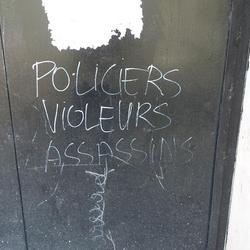 POLICIERS
VIOLEURS
ASSASSINS